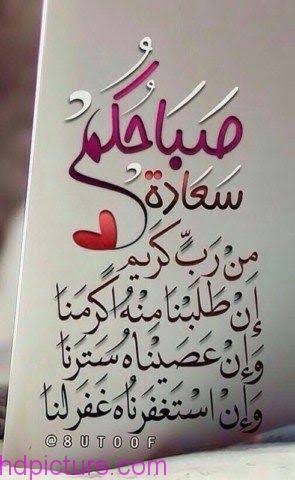 صَبَاحُكُمُ
سَعَادَةٌ
مِنْ رَبٍّ كَرِيمٍ
إِنْ طَلَبْنَا مِنْهُ أَكْرَمَنَا
وَإِنْ عَصَيْنَاهُ سَتَرَنَا
وَإِنْ اسْتَغْفَرْنَاهُ غَفَرَ لَنَا
@8UTOOF
hdpicture.com